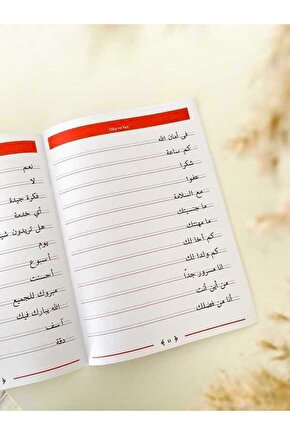 Oku ve Yaz
في أمان الله
كم ساعة
شكرا
عفوا
مع السلامة
ما جنسيتك
ما مهنتك
كم أخا لك
كم ولدا لك
انا مسرور جداً
من أين أنت
أنا من فضلك
نعم
لا
فكرة جيدة
أي خدمة
هل تريدون
يوم
أسبوع
أحسنت
مبروك للجميع
الله يبارك فيك
آسف
دقة